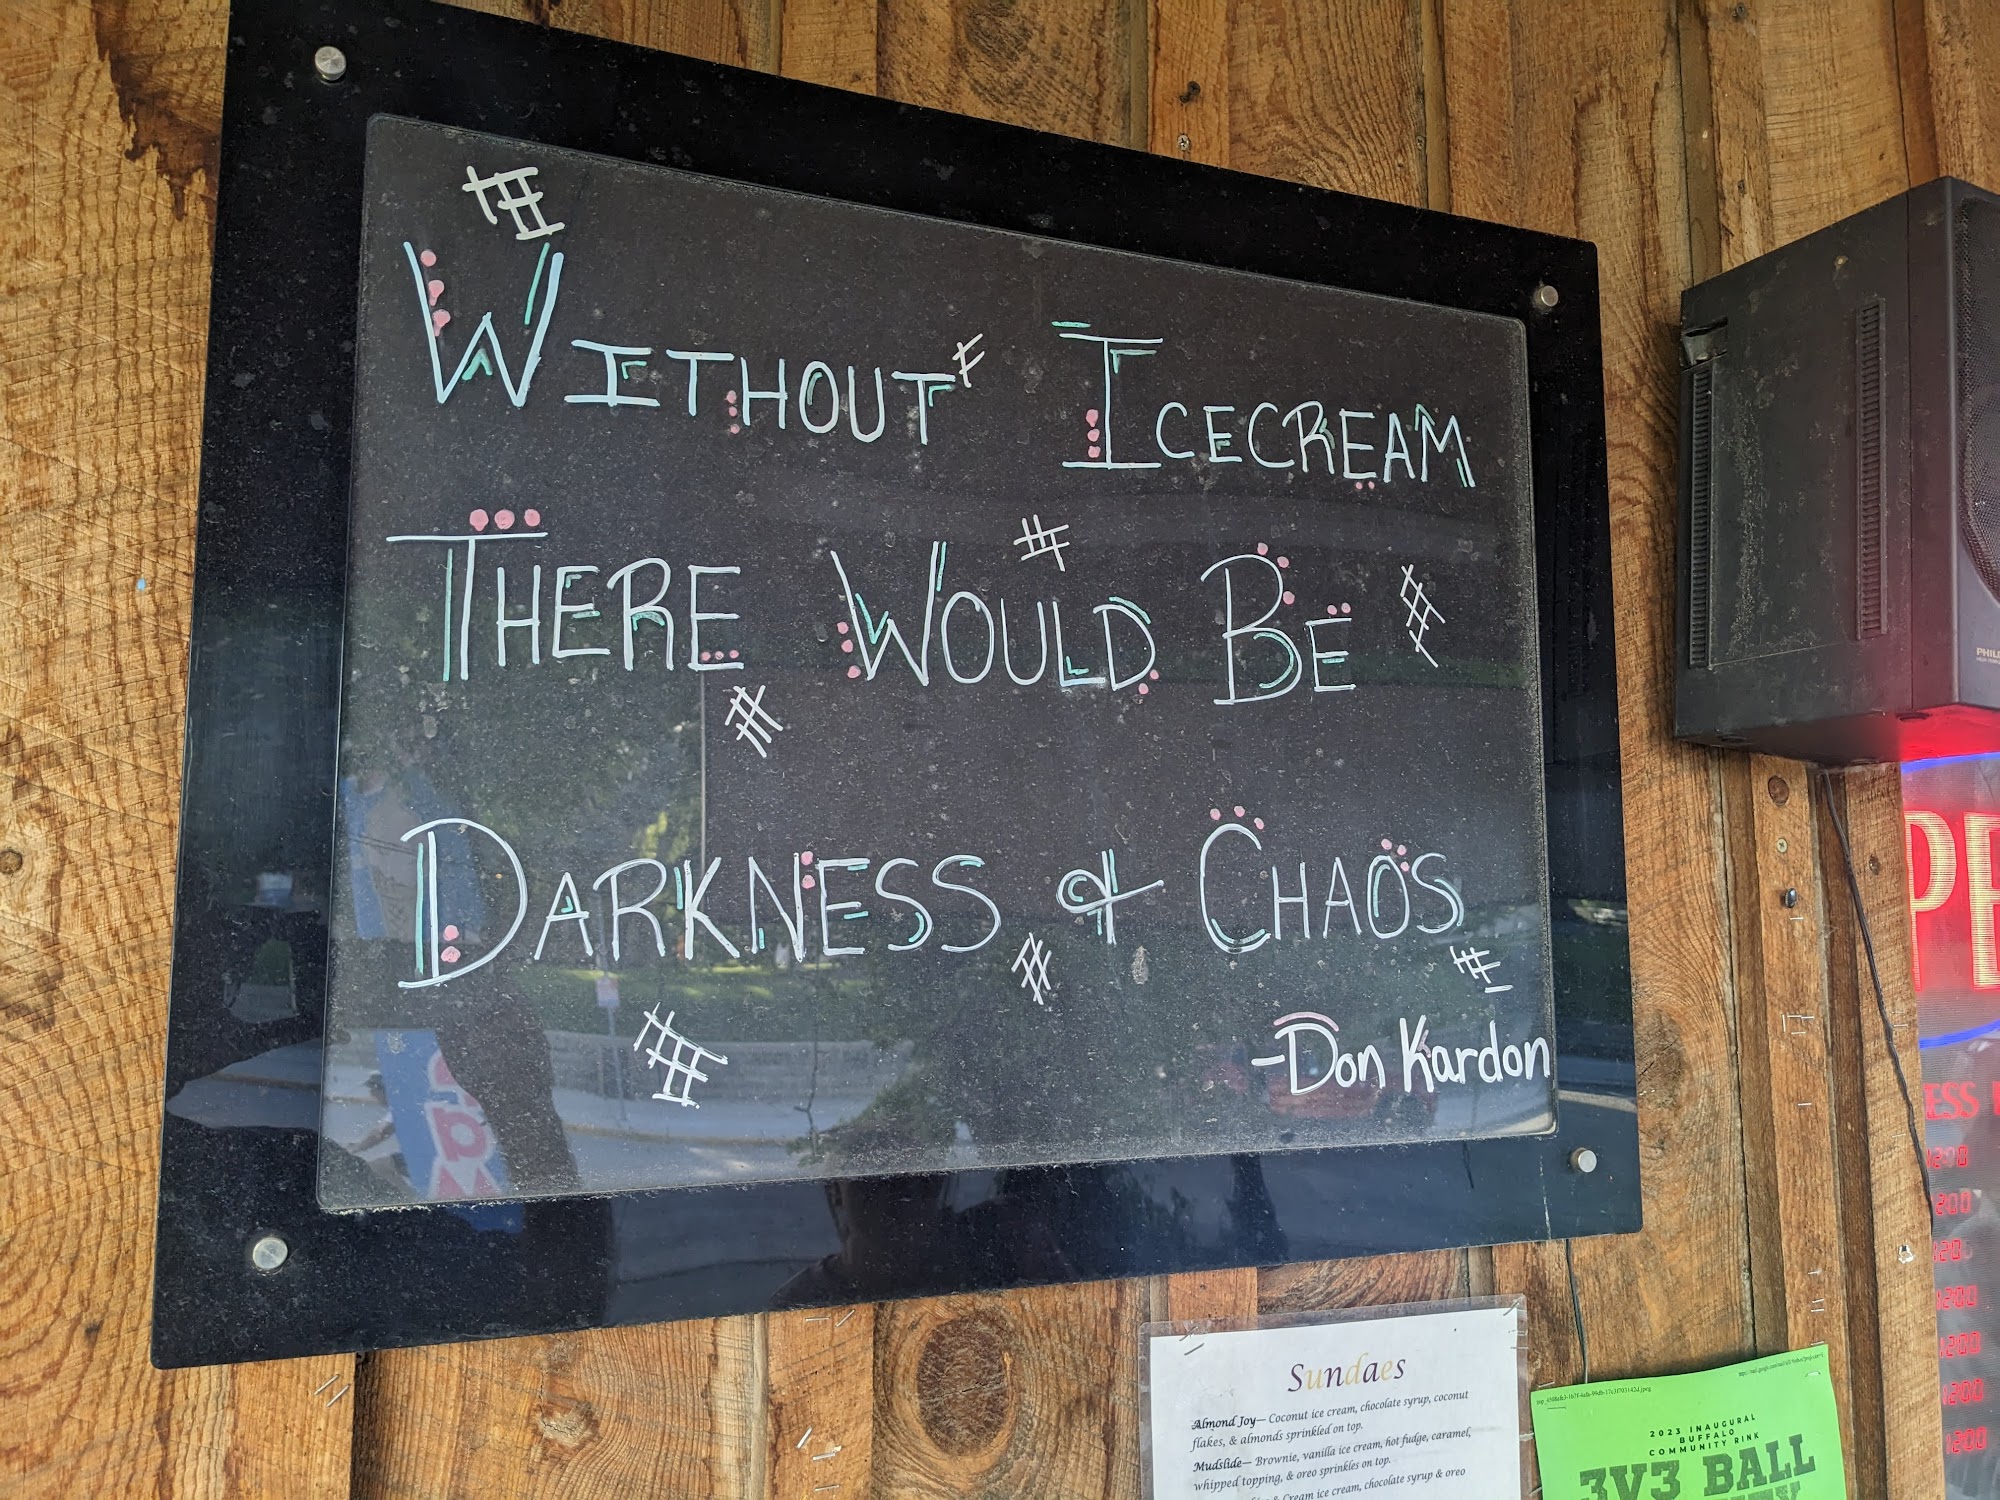 WITHOUT ICECREAM
THERE WOULD BE
DARKNESS & CHAOS
-Don Kardon
PHIL
PE
ESS
12:00
12:00
12:00
12:00
Sundaes
Almond Joy— Coconut ice cream, chocolate syrup, coconut
flakes, & almonds sprinkled on top.
Mudslide— Brownie, vanilla ice cream, hot fudge, caramel,
whipped topping, & oreo sprinkles on top.
& Cream ice cream, chocolate syrup & oreo
2023 INAUGURAL
BUFFALO
COMMUNITY RINK
3V3 BALL